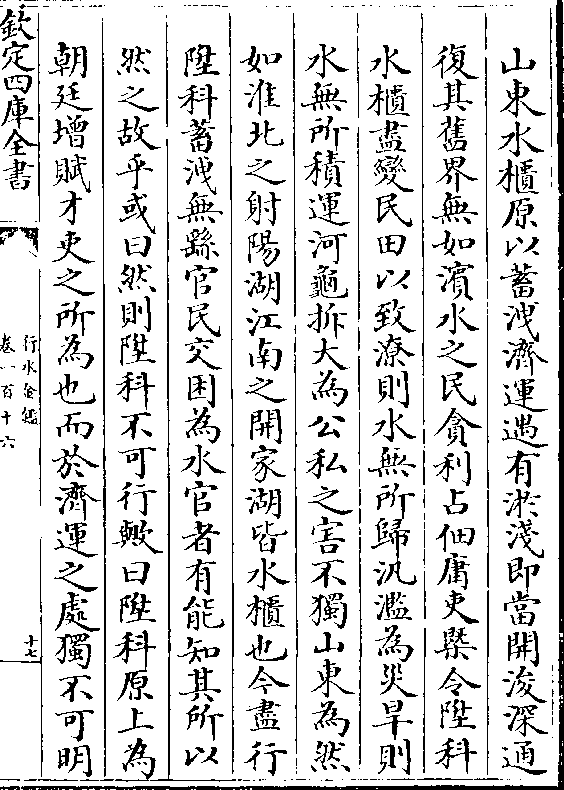 山東水櫃原以蓄洩濟運遇有淤淺即當開浚深通
復其舊界無如濱水之民貪利占佃庸吏槩令陞科
水櫃盡變民田以致潦則水無所歸汎濫為災旱則
水無所積運河龜拆大為公私之害不獨山東為然
如淮北之射陽湖江南之開家湖皆水櫃也今盡行
陞科蓄洩無繇官民交困為水官者有能知其所以
然之故乎或曰然則陞科不可行歟曰陞科原上為
朝廷增賦才吏之所為也而於濟運之處獨不可明
欽定四庫全書
行水金鑑
卷一百十六
十七